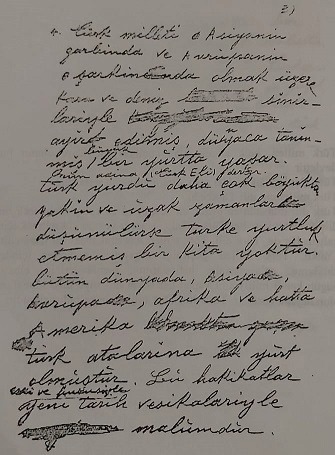 3)
4. Türk milleti Asiyanin
garbında ve Avrupanin
şarkında olmak üzere
kara ve deniz sınır-
lariyle
ayırd edilmiş, dünyaca tanın-
mış büyük bir yurtta yaşar.
Onun adına (Türk Eli) derler.
türk yurdu daha çok büyüktü
yakın ve uzak zamanlar
düşünülürse türke yurtluk
etmemiş bir kıta yoktur.
bütün dünyada, Asiyada,
Avrupada, afrika ve hatta
Amerika
türk atalarına yurt
olmuştur. Bu hakikatlar
eski ve hususiyle
yeni tarih vesikalariyle
malûmdur.